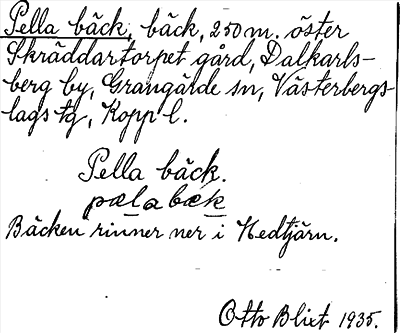 Pella bäck, bäck, 250 m. öster
Skräddartorpet gård, Dalkarls-
berg by, Grangärde sn, Västerbergs-
lags tg, Kopp l.
Pella bäck.
pælabæk
Bäcken rinner ner i Hedtjärn.
Otto Blixt 1935.